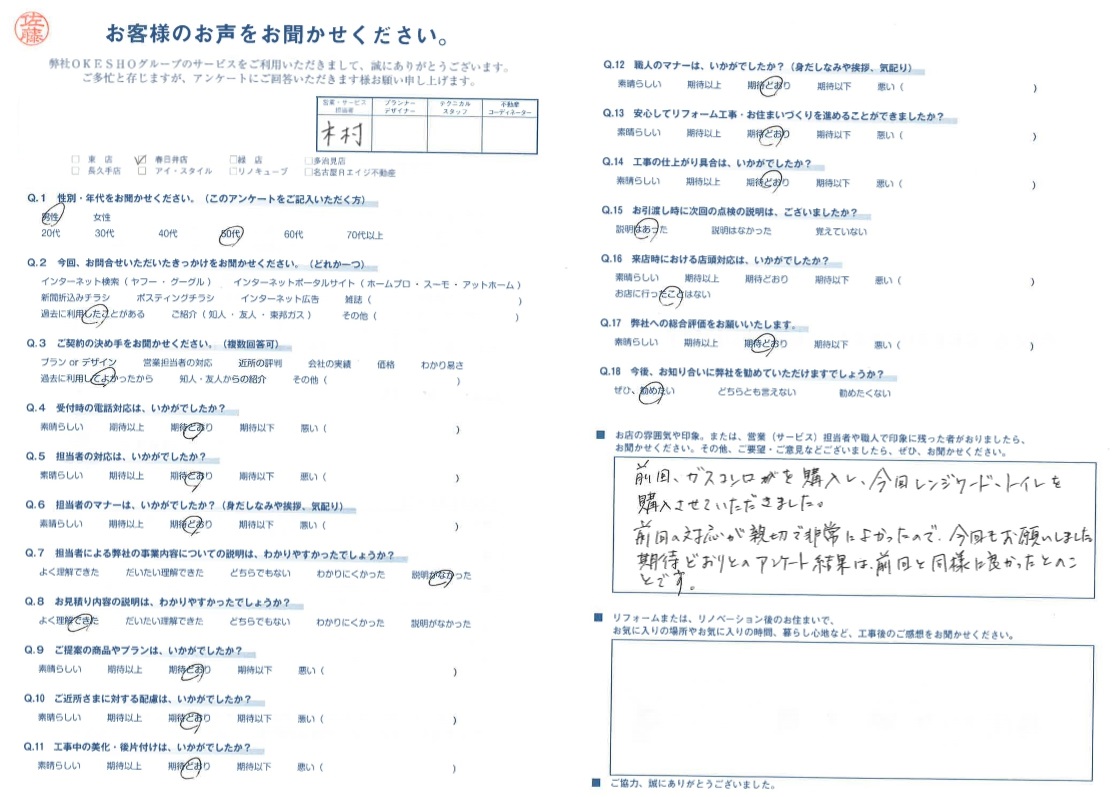 佐藤
お客様のお声をお聞かせください。
弊社OKESHOグループのサービスをご利用いただきまして、誠にありがとうございます。
ご多忙と存じますが、アンケートにご回答いただきます様お願い申し上げます。
営業・サービス担当業 プランナーデザイナー テクニカルスタッフ 不動産コーディネーター
木村
□ 東 店 ☑ 春日井店 □緑 店 □多治見店
□ 長久手店 □ アイ・スタイル □リノキューブ □名古屋Rエイジ不動産
Q.1 性別・年代をお聞かせください。（このアンケートをご記入いただく方）
男性 女性
20代 30代 40代 50代 60代 70代以上
Q.2 今回、お問合せいただいたきっかけをお聞かせください。（どれか一つ）
インターネット検索（ ヤフー ・ グーグル ） インターネットポータルサイト（ ホームプロ ・ スーモ ・ アットホーム ）
新聞折込みチラシ ポスティングチラシ インターネット広告 雑誌（ ）
過去に利用したことがある ご紹介（ 知人 ・ 友人 ・ 東邦ガス ） その他（ ）
Q.3 ご契約の決め手をお聞かせください。（複数回答可）
プラン or デザイン 営業担当者の対応 近所の評判 会社の実績 価格 わかり易さ
過去に利用してよかったから 知人・友人からの紹介 その他（ ）
Q.4 受付時の電話対応は、いかがでしたか？
素晴らしい 期待以上 期待どおり 期待以下 悪い（ ）
Q.5 担当者の対応は、いかがでしたか？
素晴らしい 期待以上 期待どおり 期待以下 悪い（ ）
Q.6 担当者のマナーは、いかがでしたか？（身だしなみや挨拶、気配り）
素晴らしい 期待以上 期待どおり 期待以下 悪い（ ）
Q.7 担当者による弊社の事業内容についての説明は、わかりやすかったでしょうか？
よく理解できた だいたい理解できた どちらでもない わかりにくかった 説明がなかった
Q.8 お見積り内容の説明は、わかりやすかったでしょうか？
よく理解できた だいたい理解できた どちらでもない わかりにくかった 説明がなかった
Q.9 ご提案の商品やプランは、いかがでしたか？
素晴らしい 期待以上 期待どおり 期待以下 悪い（ ）
Q.10 ご近所さまに対する配慮は、いかがでしたか？
素晴らしい 期待以上 期待どおり 期待以下 悪い（ ）
Q.11 工事中の美化・後片付けは、いかがでしたか？
素晴らしい 期待以上 期待どおり 期待以下 悪い（ ）
Q.12 職人のマナーは、いかがでしたか？（身だしなみや挨拶、気配り）
素晴らしい 期待以上 期待どおり 期待以下 悪い（ ）
Q.13 安心してリフォーム工事・お住まいづくりを進めることができましたか？
素晴らしい 期待以上 期待どおり 期待以下 悪い（ ）
Q.14 工事の仕上がり具合は、いかがでしたか？
素晴らしい 期待以上 期待どおり 期待以下 悪い（ ）
Q.15 お引渡し時に次回の点検の説明は、ございましたか？
説明はあった 説明はなかった 覚えていない
Q.16 来店時における店頭対応は、いかがでしたか？
素晴らしい 期待以上 期待どおり 期待以下 悪い（ ）
お店に行ったことはない
Q.17 弊社への総合評価をお願いいたします。
素晴らしい 期待以上 期待どおり 期待以下 悪い（ ）
Q.18 今後、お知り合いに弊社を勧めていただけますでしょうか？
ぜひ、勧めたい どちらとも言えない 勧めたくない
■ お店の雰囲気や印象。または、営業（サービス）担当者や職人で印象に残った者がおりましたら、
お聞かせください。その他、ご要望・ご意見などございましたら、ぜひ、お聞かせください。
前回、ガスコンロがを購入し、今回レンジフード、トイレを
購入させていただきました。
前回の対応が親切で非常によかったので、今回もお願いしました
期待どおりとのアンケート結果は、前回と同様に良かったとのこ
とです。
■ リフォームまたは、リノベーション後のお住まいで、
お気に入りの場所やお気に入りの時間、暮らし心地など、工事後のご感想をお聞かせください。
■ ご協力、誠にありがとうございました。